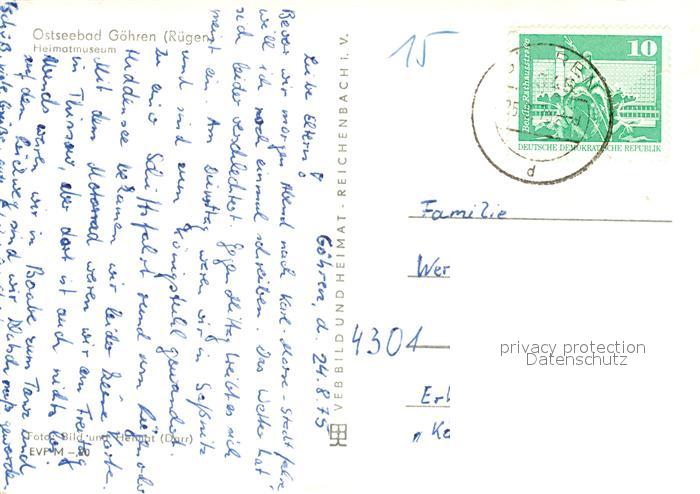 Ostseebad Göhren (Rügen)
Heimatmuseum
Göhren, d. 24.8.75
Liebe Eltern!
Bevor wir morgen Abend nach Karl-Marx-Stadt fahren
will ich noch einmal schreiben. Das Wetter hat
sich leider verschlechtert. Gegen Mittag weicht es sich
meist ein. Am Dienstag waren wir in Saßnitz
und sind zum Königstuhl gewandert.
Zu einer Schiffsfahrt rund um Rügen oder
Hiddensee bekamen wir leider keine Karten.
Mit dem Motorrad waren wir am Freitag
in Thiessow, aber dort ist auch nichts los.
Abends waren wir in Baabe zum Tanz und
auf dem Rückweg sind wir klatschnaß geworden.
Tschüß, viele Grüße
Foto: Bild und Heimat (Darr)
EVP M –,20
VEB BILD UND HEIMAT · REICHENBACH i. V.
15
10
Berlin Rathausstraße
DEUTSCHE DEMOKRATISCHE REPUBLIK
d
Familie
Wer
4301
privacy protection
Datenschutz